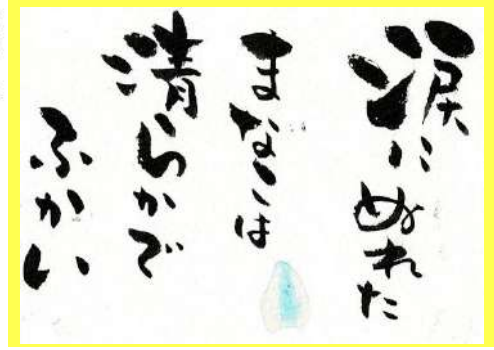 涙にぬれた
まなこは
清らかで
ふかい